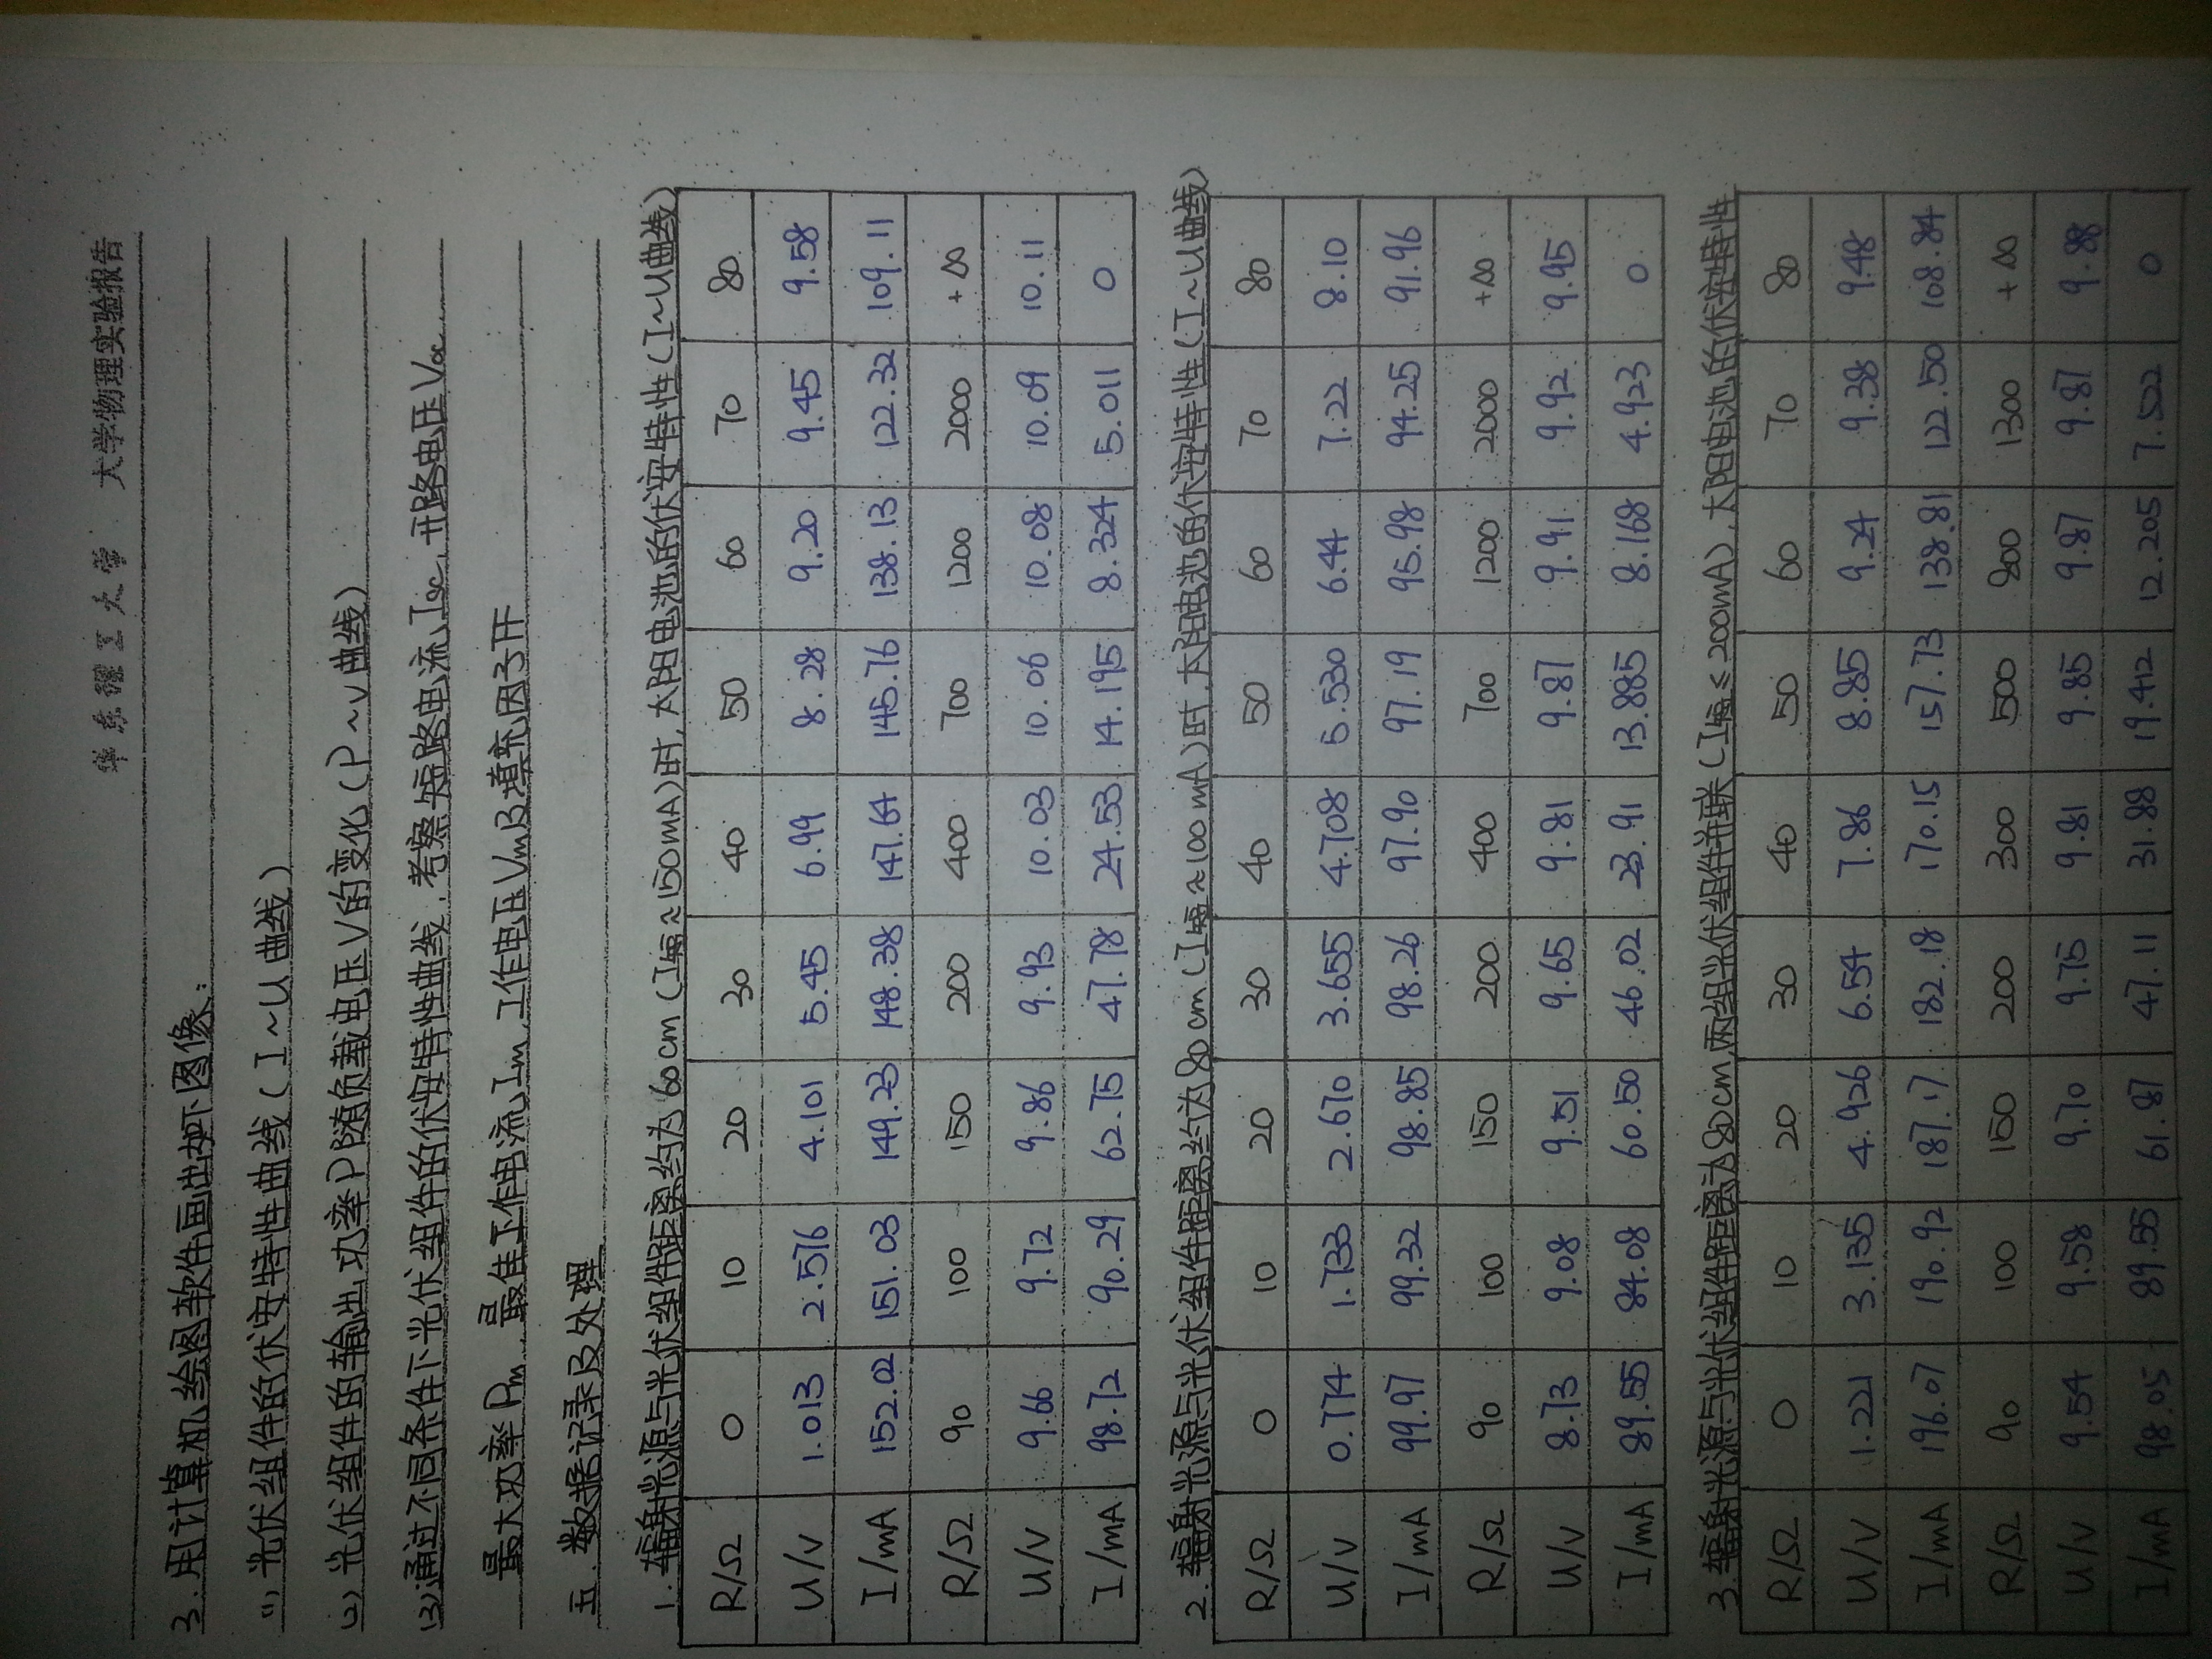 华东理工大学 大学物理实验报告
3.用计算机绘图软件画出如下图像:
(1)光伏组件的伏安特性曲线(I~U曲线)
(2)光伏组件的输出功率P随负载电压V的变化(P~V曲线)
(3)通过不同条件下光伏组件的伏安特性曲线,考察短路电流Isc,开路电压Voc,
最大功率Pm,最佳工作电流Im,工作电压Vm及填充因子FF
五.数据记录及处理
1.辐射光源与光伏组件距离约为60cm(I短≈150mA)时,太阳电池的伏安特性(I~U曲线)
R/Ω 0 10 20 30 40 50 60 70 80
U/V 1.013 2.576 4.101 5.45 6.99 8.28 9.20 9.45 9.58
I/mA 152.02 151.03 149.23 148.38 147.64 145.76 138.13 122.32 109.11
R/Ω 90 100 150 200 400 700 1200 2000 +∞
U/V 9.66 9.72 9.86 9.93 10.03 10.06 10.08 10.09 10.11
I/mA 98.72 90.29 62.75 47.78 24.53 14.195 8.324 5.011 0
2.辐射光源与光伏组件距离约为80cm(I短≈100mA)时,太阳电池的伏安特性(I~U曲线)
R/Ω 0 10 20 30 40 50 60 70 80
U/V 0.774 1.733 2.670 3.655 4.708 5.530 6.44 7.22 8.10
I/mA 99.97 99.32 98.85 98.26 97.90 97.19 95.98 94.25 91.96
R/Ω 90 100 150 200 400 700 1200 2000 +∞
U/V 8.73 9.08 9.51 9.65 9.81 9.87 9.91 9.92 9.95
I/mA 89.55 84.08 60.50 46.02 23.91 13.885 8.168 4.923 0
3.辐射光源与光伏组件距离为80cm,两组光伏组件并联(I短≤200mA),太阳电池的伏安特性
R/Ω 0 10 20 30 40 50 60 70 80
U/V 1.221 3.135 4.926 6.54 7.86 8.85 9.24 9.38 9.48
I/mA 196.07 190.92 187.17 182.18 170.15 157.73 138.81 122.50 108.84
R/Ω 90 100 150 200 300 500 800 1300 +∞
U/V 9.54 9.58 9.70 9.75 9.81 9.85 9.87 9.87 9.88
I/mA 98.05 89.55 61.87 47.11 31.88 19.412 12.205 7.522 0